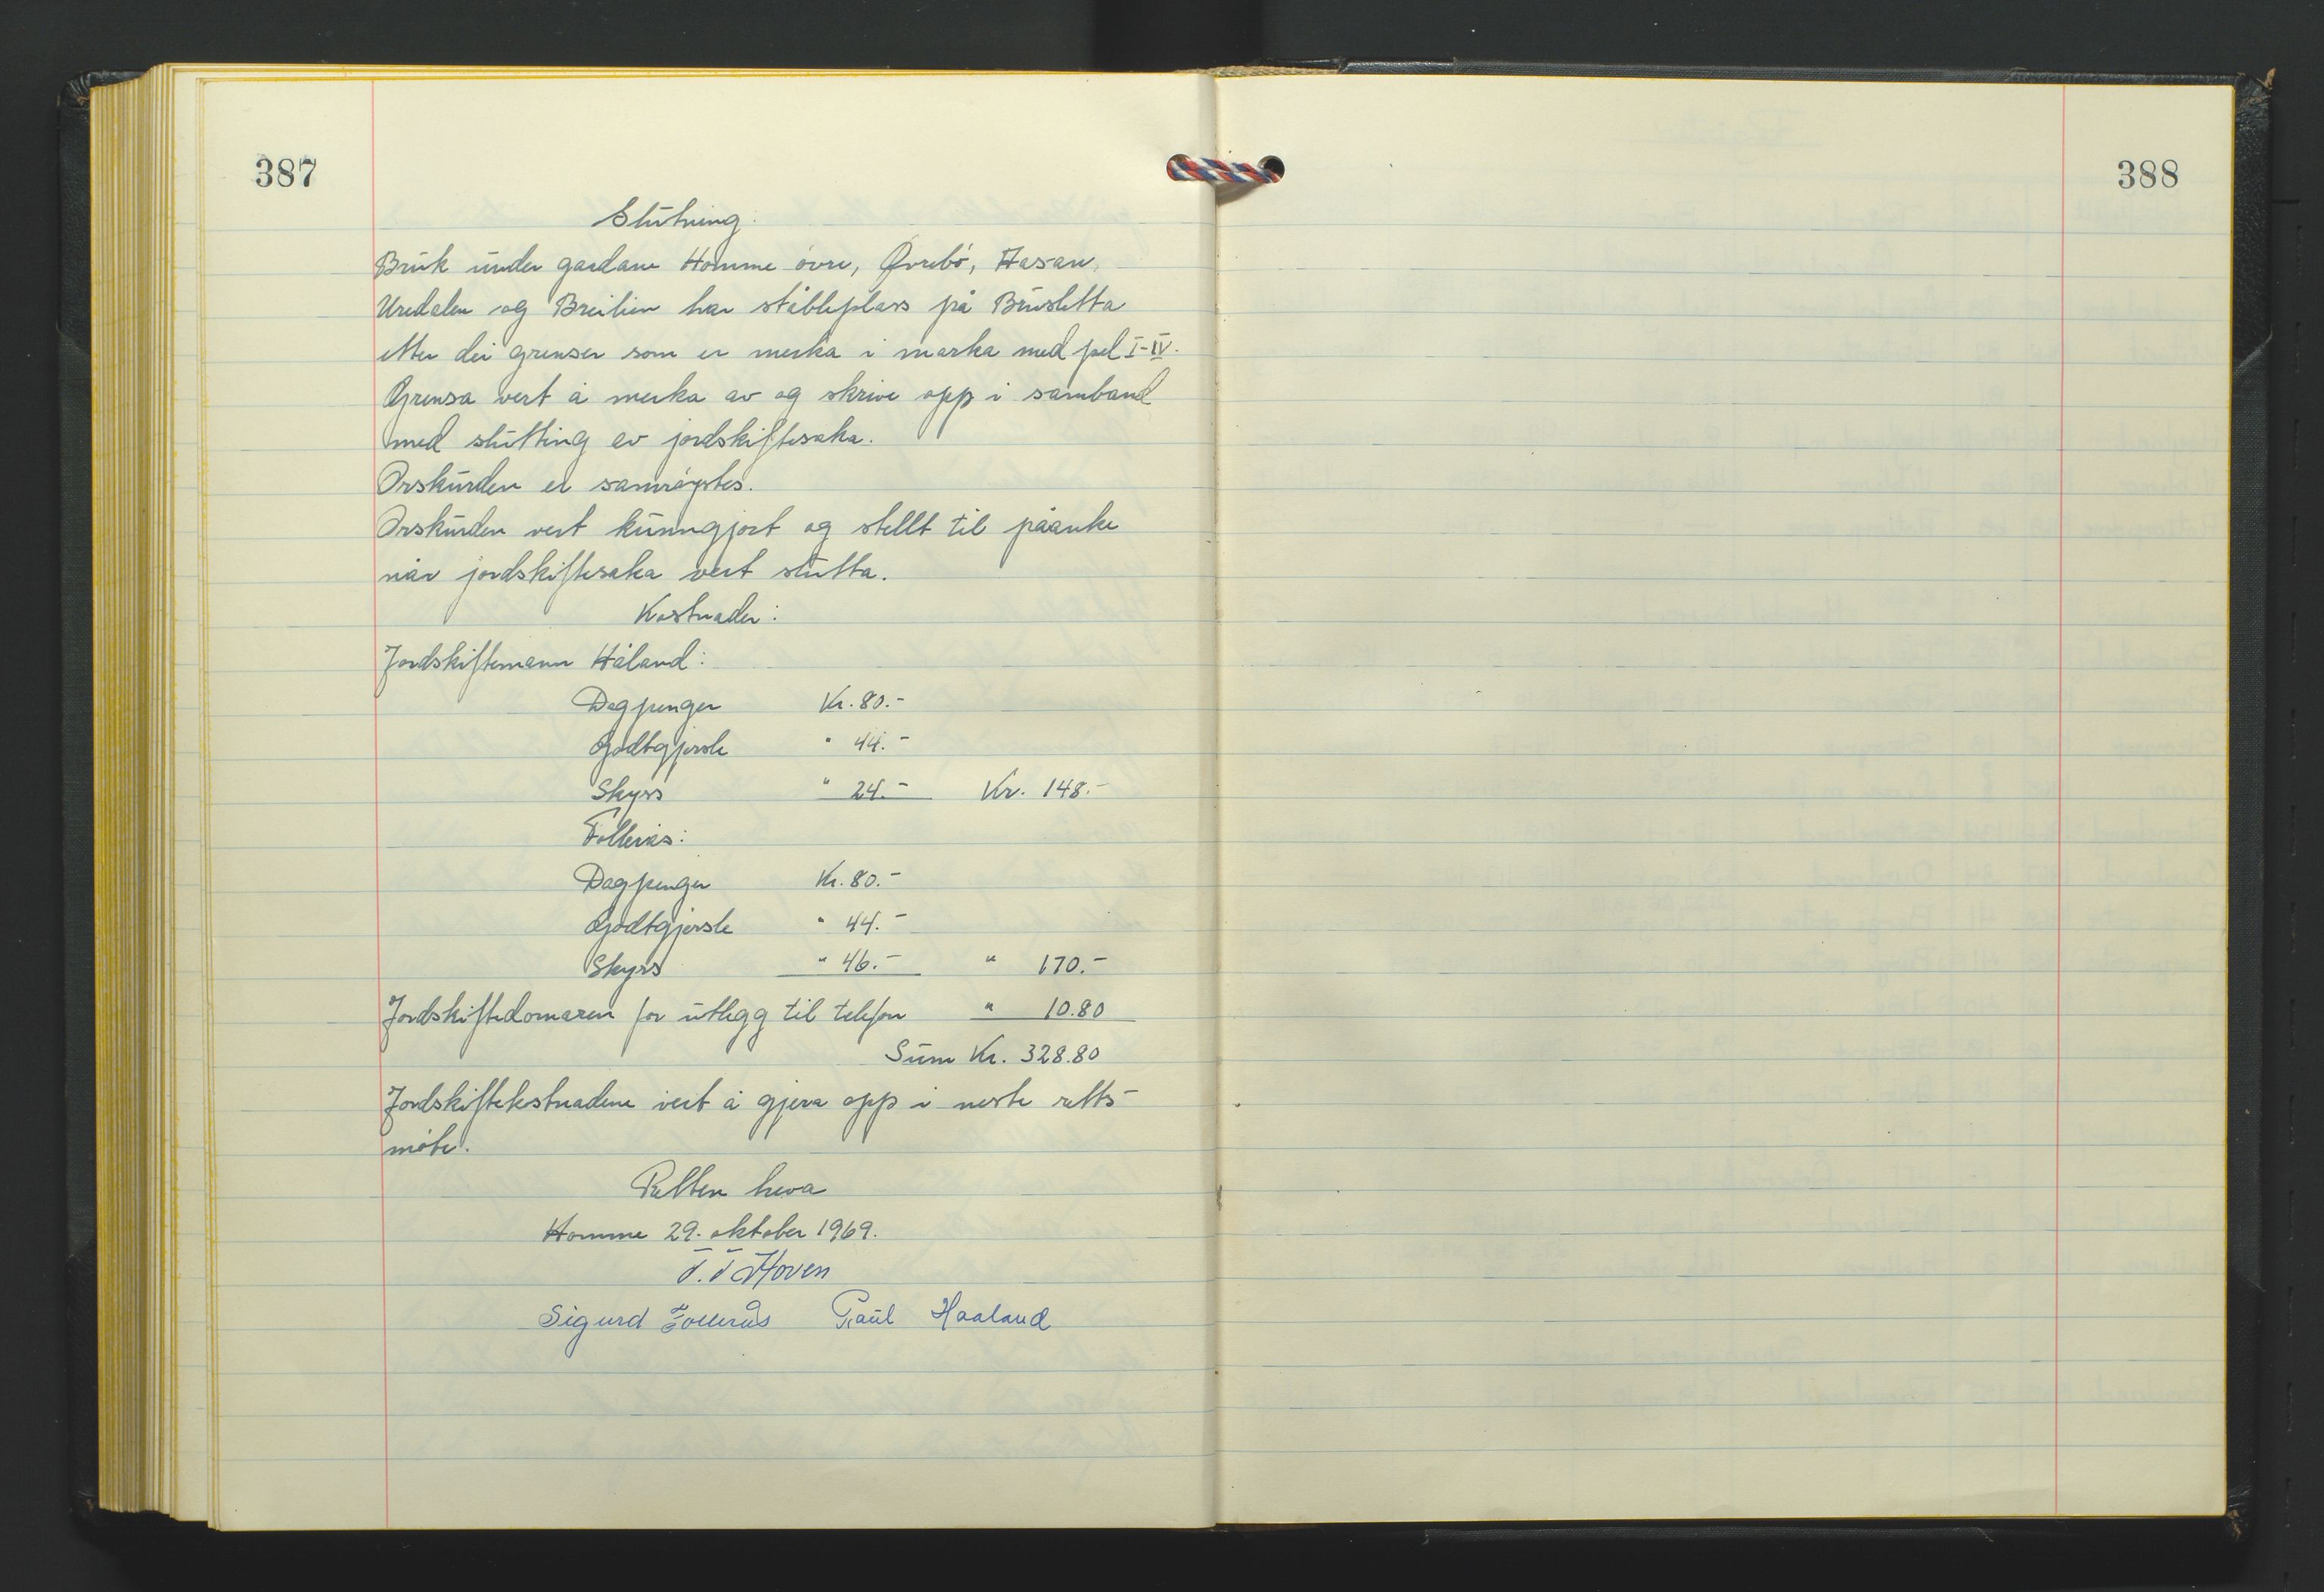 387
Slutning:
Bruk under gardane Homme øvre, Øvrebø, Hasan,
Uredalen og Breilien har stableplass på Bruslétta
etter dei grenser som er merka i marka med pel I-IV.
Grensa vert å merka av og skrive opp i samband
med slutting av jordskiftesaka.
Orskurden er samrøystes.
Orskurden vert kunngjort og stellt til påanke
når jordskiftesaka vert slutta.
Kostnader:
Jordskiftemann Håland:
Dagpenger Kr. 80.-
Godtgjersle " 44.-
Skyss " 24.- Kr. 148.-
Follerås:
Dagpenger Kr. 80.-
Godtgjersle " 44.-
Skyss " 46.- " 170.-
Jordskiftedomaren for utlegg til telefon " 10.80
Sum Kr. 328.80
Jordskiftekostnadene vert å gjera opp i neste retts-
møte.
Retten heva
Homme 29. oktober 1969.
T. T. Hoven
Sigurd Follerås Paul Haaland
388